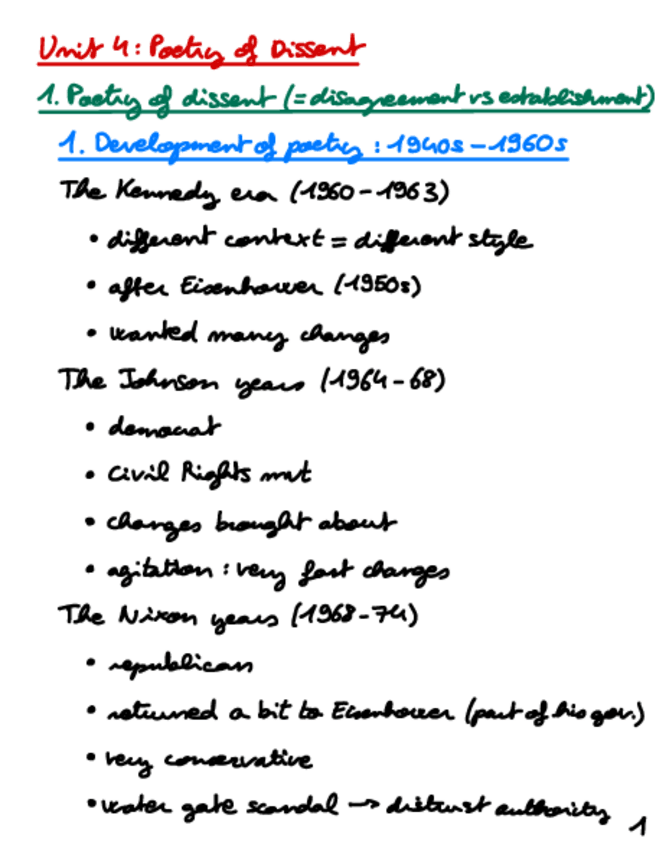 Unit 4: Poetry of Dissent
1. Poetry of dissent (= disagreement vs establishment)
1. Development of poetry : 1940s – 1960s
The Kennedy era (1960 – 1963)
• different context = different style
• after Eisenhower (1950s)
• wanted many changes
The Johnson years (1964 – 68)
• democrat
• Civil Rights mvt
• changes brought about
• agitation : very fast changes
The Nixon years (1968 – 74)
• republican
• returned a bit to Eisenhower (part of his gov.)
• very conservative
• water gate scandal → distrust authority
1